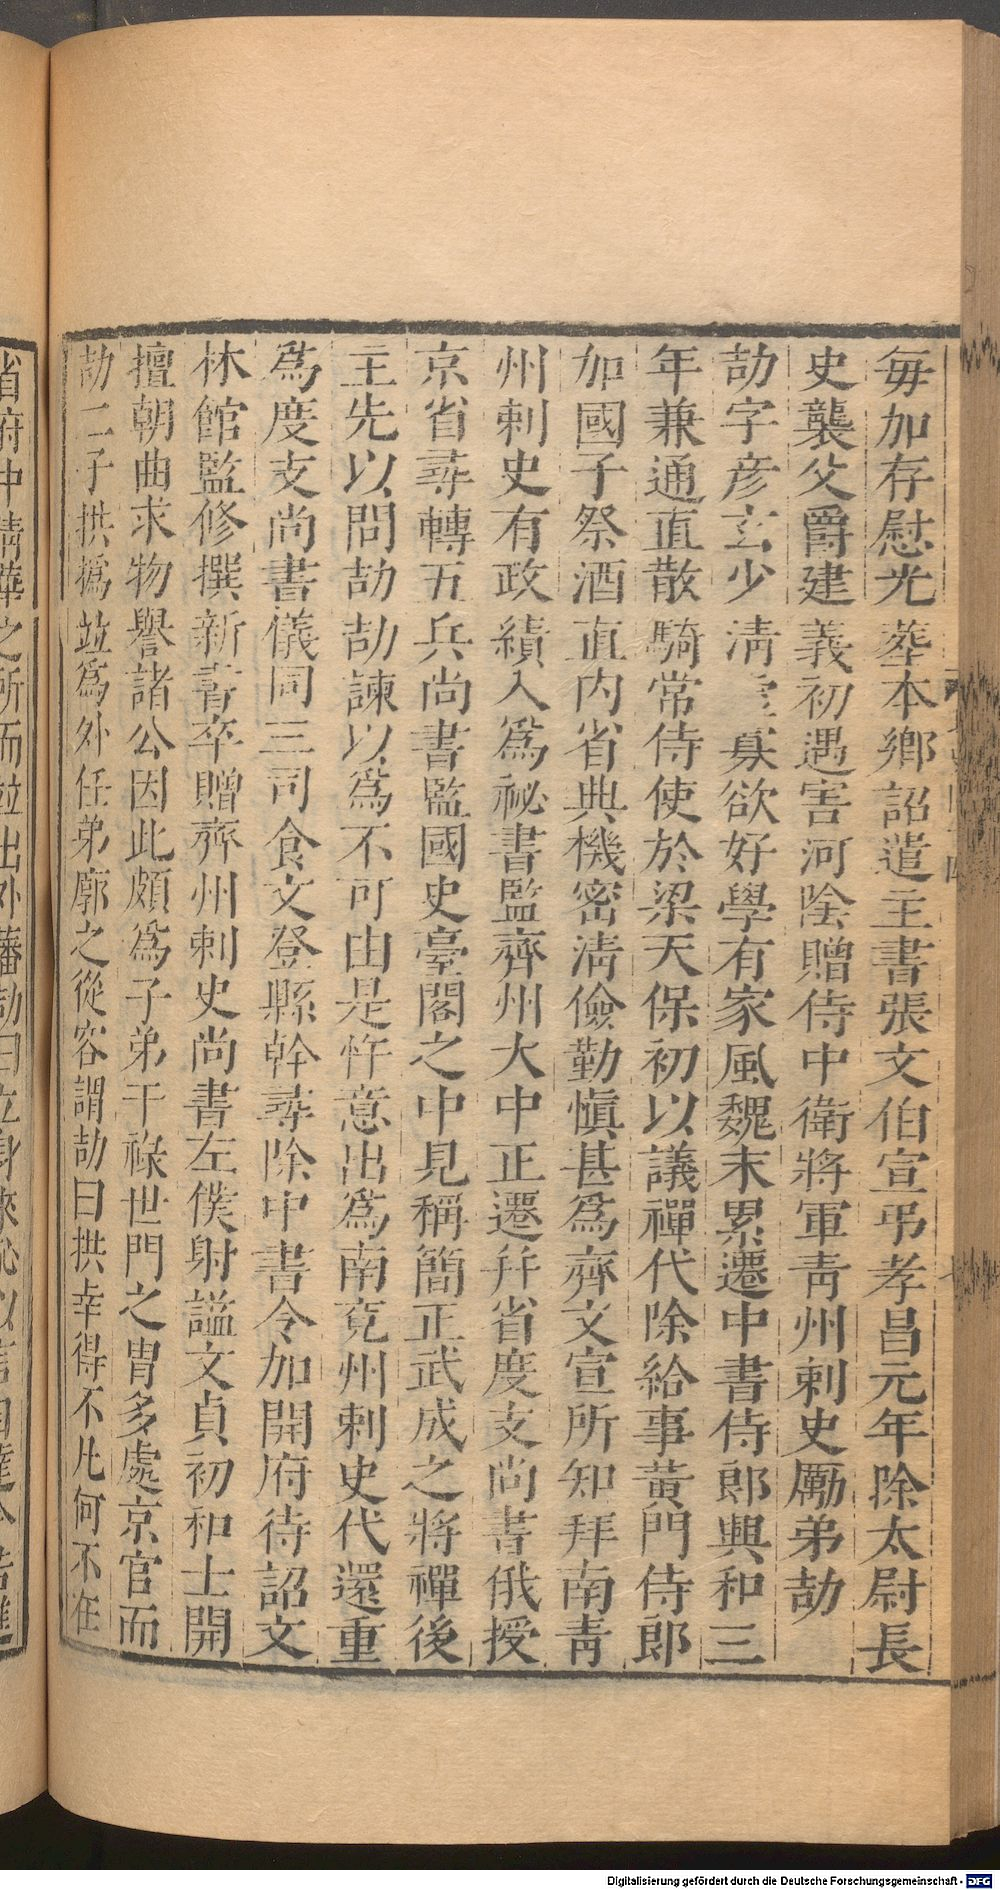 毎加存慰光葬本鄉詔遣主書張文伯宣弔孝昌元年除太尉長
史襲父爵建義初遇害河陰贈侍中衛將軍青州刺史勵弟劼
劼字彥玄少清寡欲好學有家風魏末累遷中書侍郎興和三
年兼通直散騎常侍使於梁天保初以議禪代除給事黃門侍郎
加國子祭酒直内省典機密清儉勤慎甚爲齊文宣所知拜南青
州刺史有政績入爲祕書監齊州大中正遷幷省度支尚書俄授
京省尋轉五兵尚書監國史臺閣之中見稱簡正武成之將禪後
主先以問劼劼諫以爲不可由是忤意出爲南兗州刺史代還重
爲度支尚書儀同三司食文登縣幹尋除中書令加開府待詔文
林館監修撰新書卒贈齊州刺史尚書左僕射謚文貞初和士開
擅朝曲求物譽諸公因此頗爲子弟干祿世門之胄多處京官而
劼二子拱撝並爲外任弟廓之從容謂劼曰拱幸得不凡何不在
省府中清華之所而並出外藩劼曰立身來恥以言自達今若進
Digitalisierung gefördert durch die Deutsche Forschungsgemeinschaft - DFG